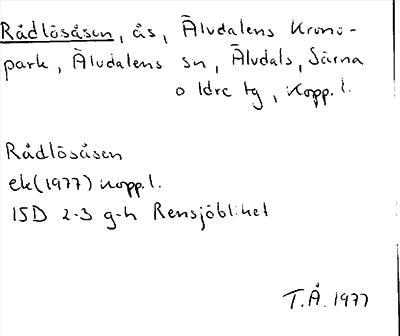 Rådlösåsen, ås, Älvdalens Krono-
park, Älvdalens sn, Älvdals, Särna
o Idre tg, Kopp. l.
Rådlösåsen
ek (1977) Kopp. l.
15D 2-3 g-h Rensjöbliket
T.Å. 1977